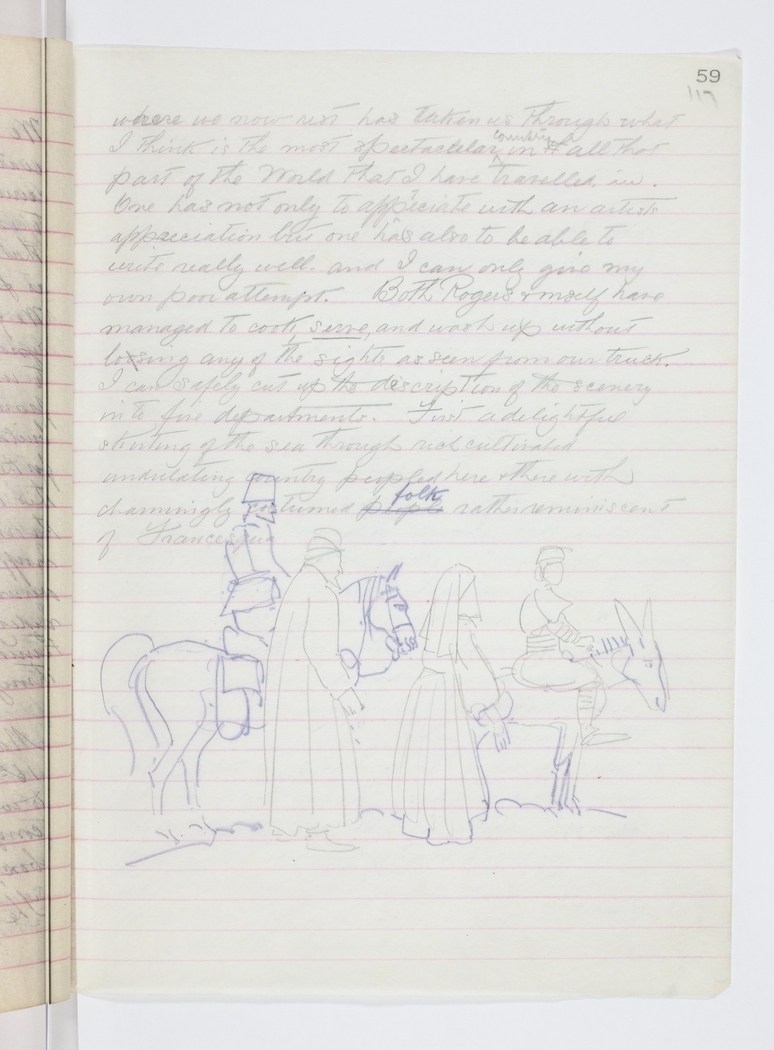 59
117
where we now rest has taken us through what
I think is the most spectacular country in all that
part of the World that I have travelled in.
One has not only to appreciate with an artists
appreciation but one has also to be able to
write really well. and I can only give my
own poor attempt. Both Rogers & mself have
managed to cook, serve, and wash up without
loosing any of the sights as seen from our truck.
I can safely cut up the description of the scenery
into five departments. First a delightful
skirting of the sea through rich cultivated
undulating country peopled here & there with
charmingly costumed people folk rather reminiscent
of Francesqua